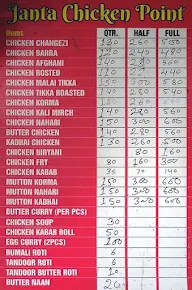 Janta Chicken Point
Items QTR. HALF FULL
CHICKEN CHANGEZI 130 260 500
CHICKEN BARRA 120 240 480
CHICKEN AFGHANI 140 280 560
CHICKEN ROSTED 110 220 440
CHICKEN MALAI TIKKA 150 300
CHICKEN TIKKA ROASTED 140 280 550
CHICKEN KORMA 260
CHICKEN KALI MIRCH 140 280 560
CHICKEN NAHARI 150 300 600
BUTTER CHICKEN 140 280 560
KADHAI CHICKEN 130 260
CHICKEN BIRYANI 80 160
CHICKEN FRY 80 160 300
CHICKEN KABAB 35 70 140
MUTTON KORMA 150 300 600
MUTTON NAHARI 150 300 600
MUTTON KADHAI 150 300 600
BUTTER CURRY (PER PCS)
CHICKEN SOUP 30
CHICKEN KABAB ROLL 50
EGG CURRY (2PCS) 100
RUMALI ROTI 6
TANDOOR ROTI 6
TANDOOR BUTTER ROTI 10
BUTTER NAAN 20